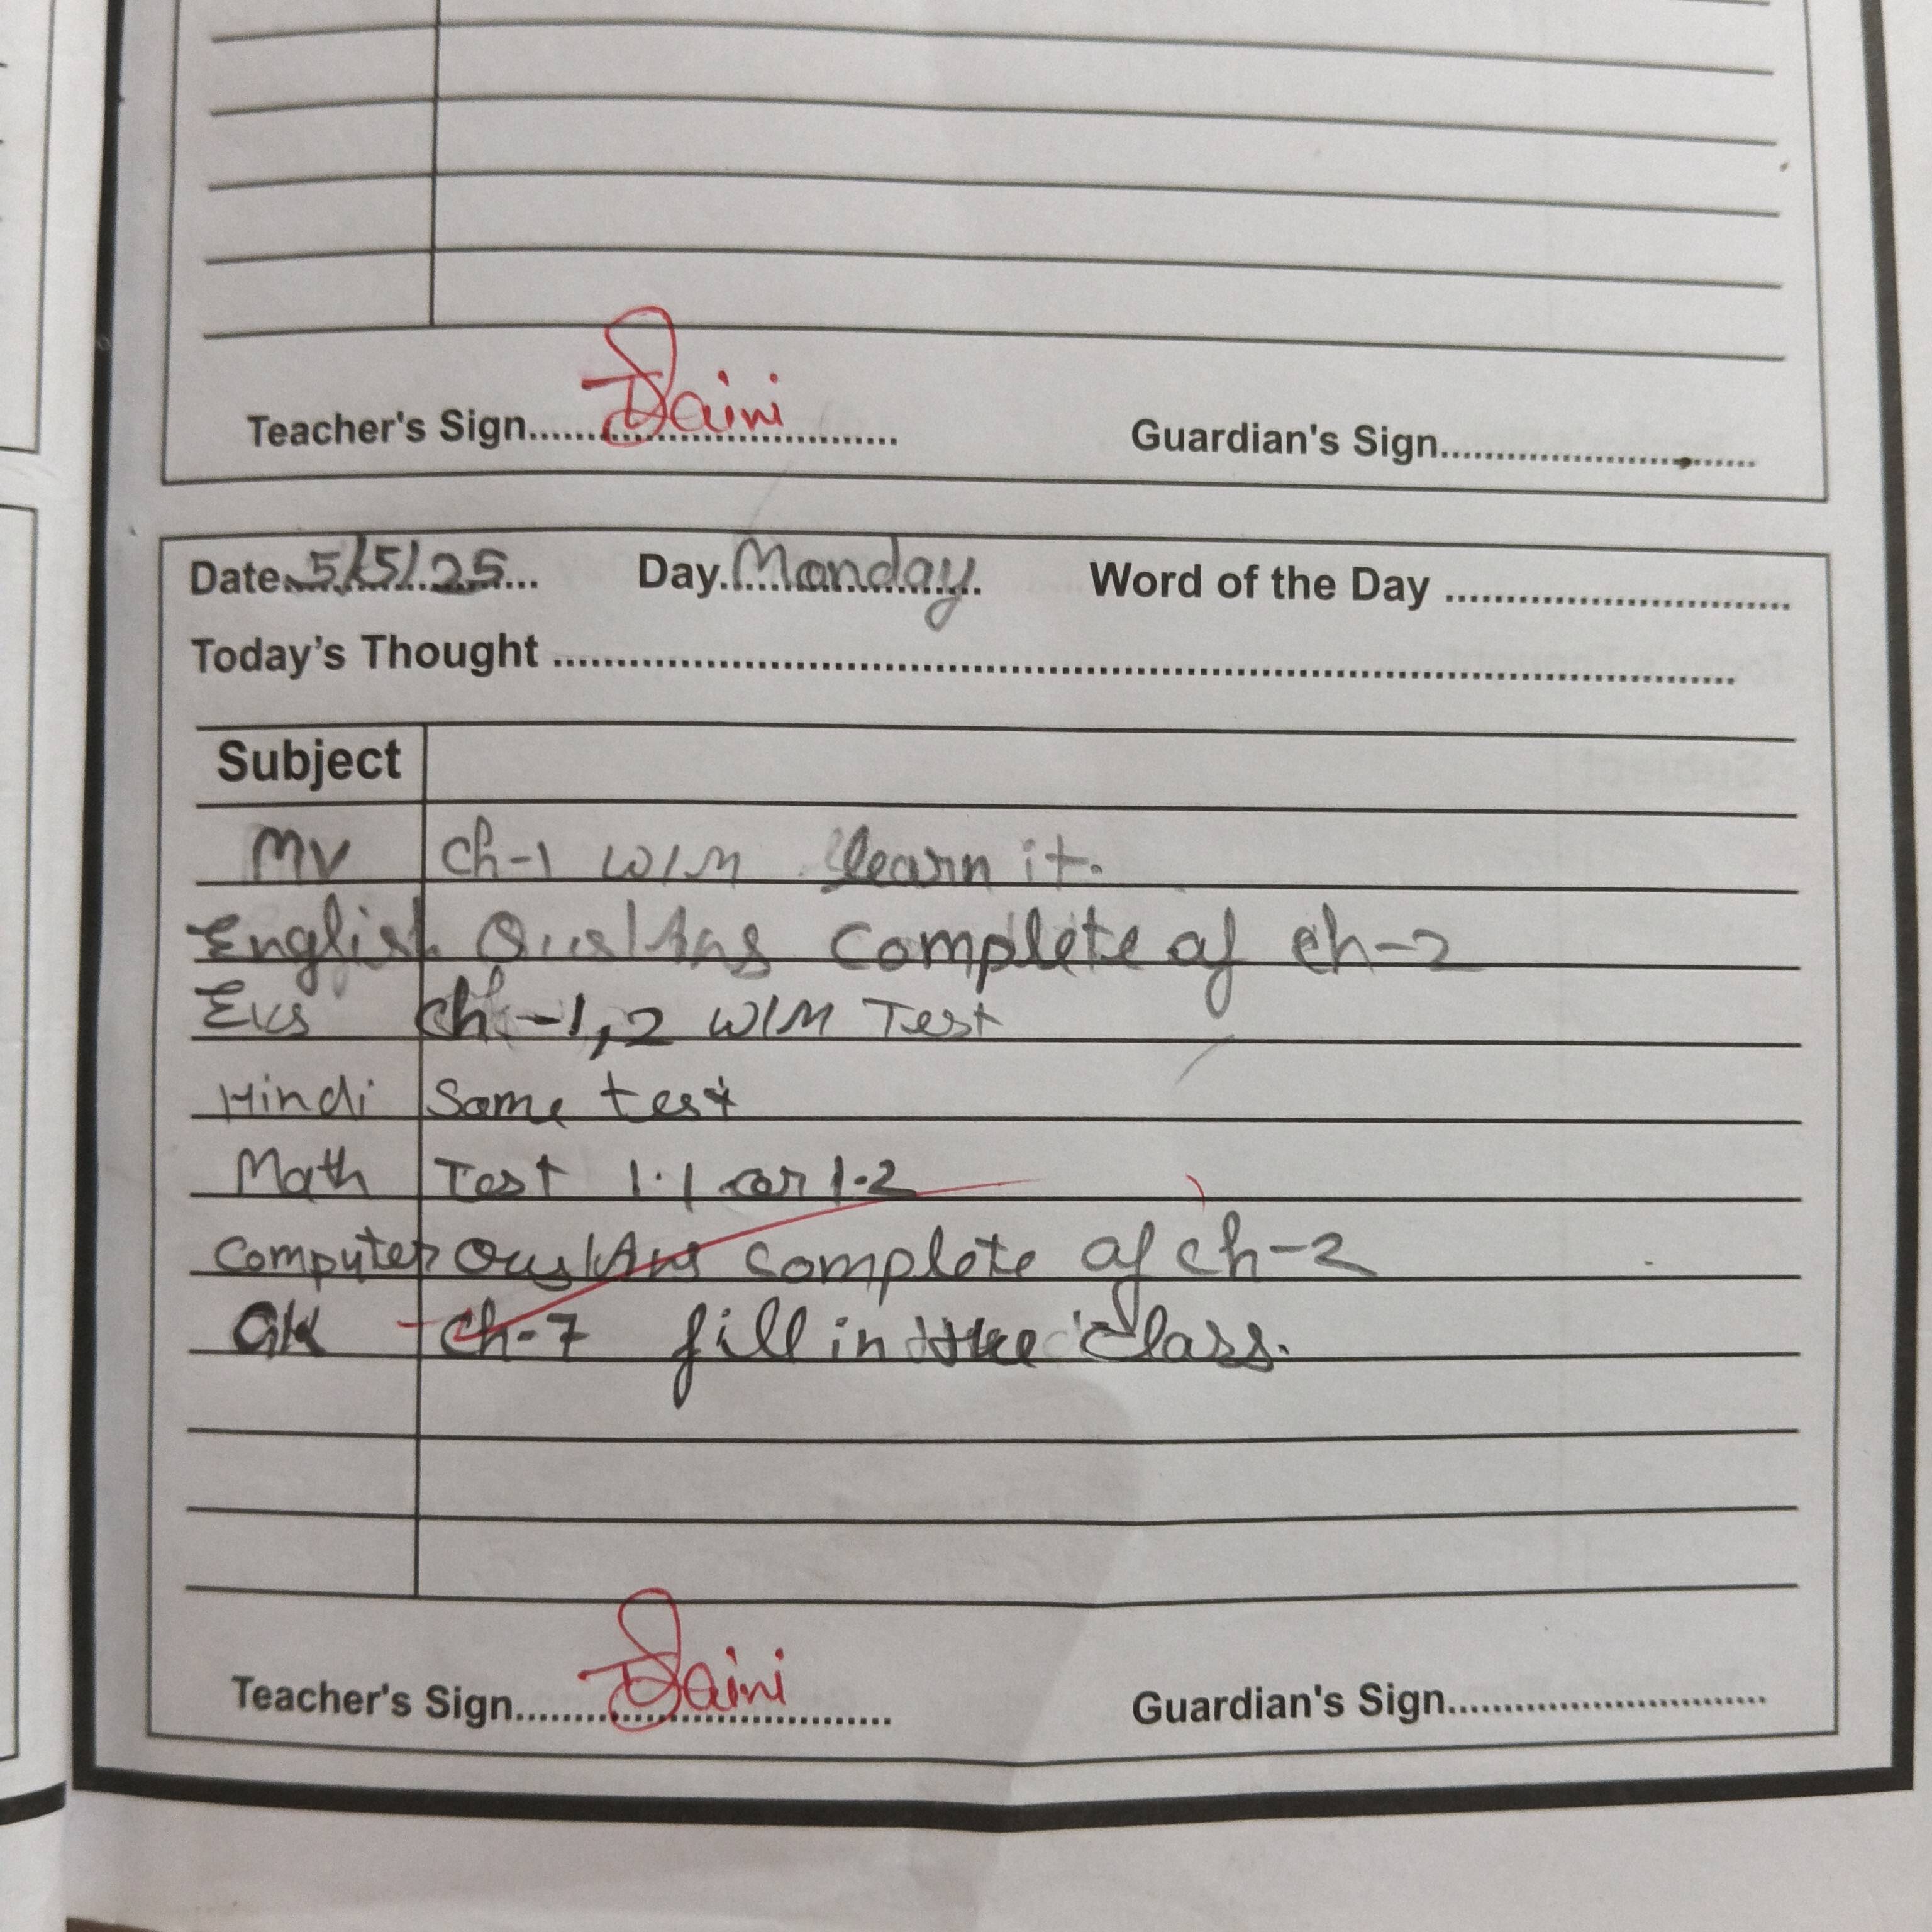 Teacher's Sign.....Saini..... Guardian's Sign.....
Date 5/5/25 Day Monday Word of the Day .....
Today's Thought .....
Subject
MV Ch-1 W/M learn it.
English Qus/Ans Complete of ch-2
Evs Ch-1,2 W/M Test
Hindi Same test
Math Test 1.1 or 1.2
Computer Qus/Ans complete of ch-2
GK Ch-7 fill in the class.
Teacher's Sign.....Saini..... Guardian's Sign.....